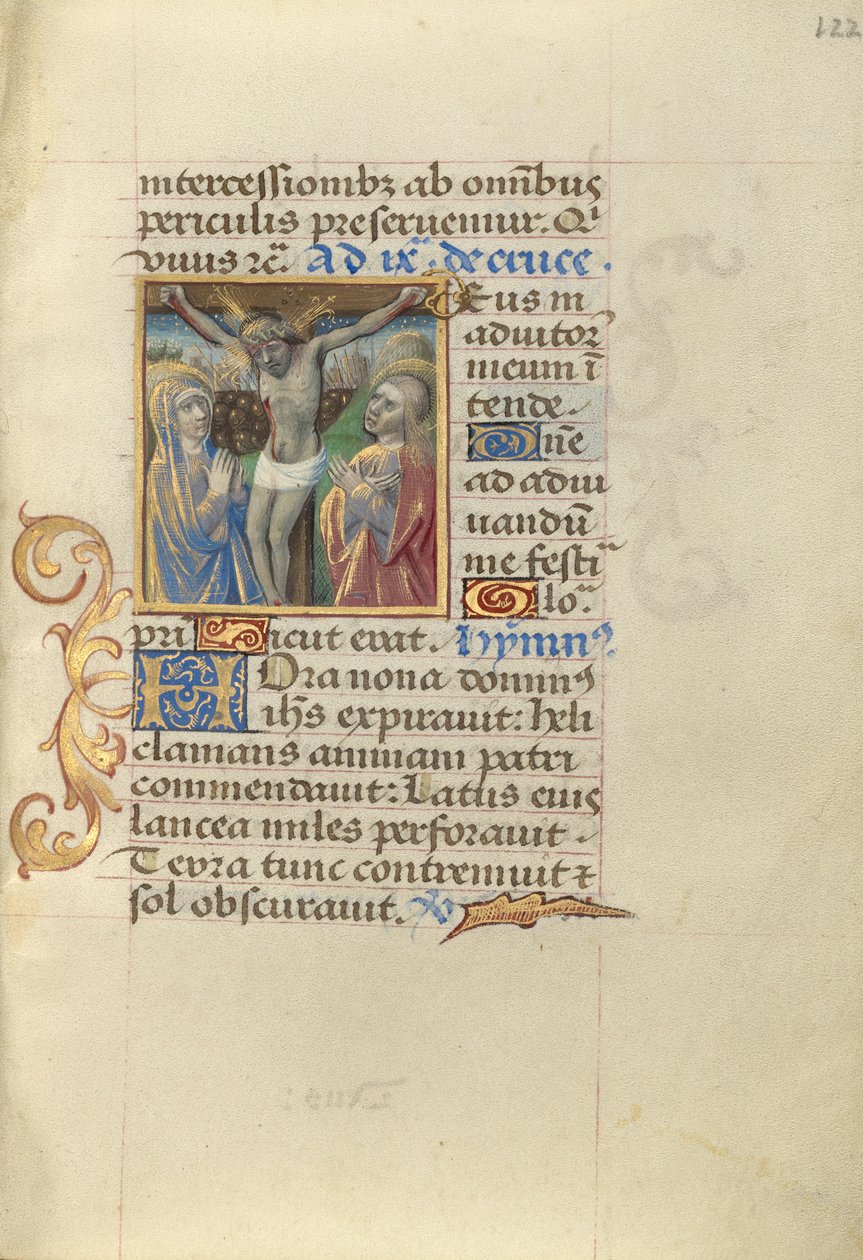 122
intercessionibꝫ ab om̄ibus
periculis preseruemur. Qi
viuis ⁊c̃. Ad ixᵃ. de cruce.
Deus in
adiutoꝛ̃
meum ī
tende.
Dn̄e
ad adiu
uandū
me festiᵃ
Gloᵃ.
pri Sicut erat. hymnꝰ.
HOra nona dominꝰ
ih̄s expirauit: heli
clamans animam patri
commendauit: Latus eius
lancea miles perforauit.
Terra tunc contremuit ⁊
sol obscurauit.